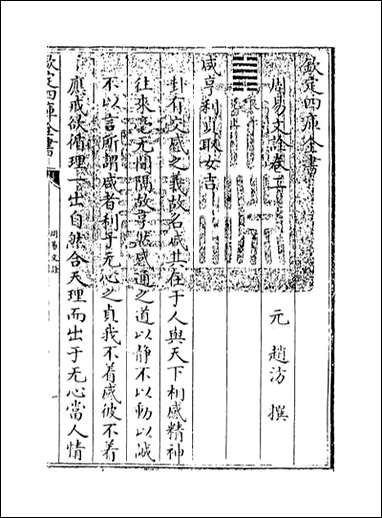 欽定四庫全書
周易文詮卷二
元 趙汸 撰
咸亨利貞取女吉
卦有交感之義故名咸其在于人與天下相感精神
往來毫无間隔故亨然感通之道以静不以動以誠
不以言所謂咸者利于无心之貞我不着感彼不着
應戒欲循理一出自然合天理而出于无心當人情
欽定四庫全書
周易文詮